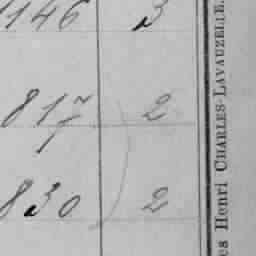 1146 3
817 2
830 2
es Henri CHARLES-LAVAUZELLE.